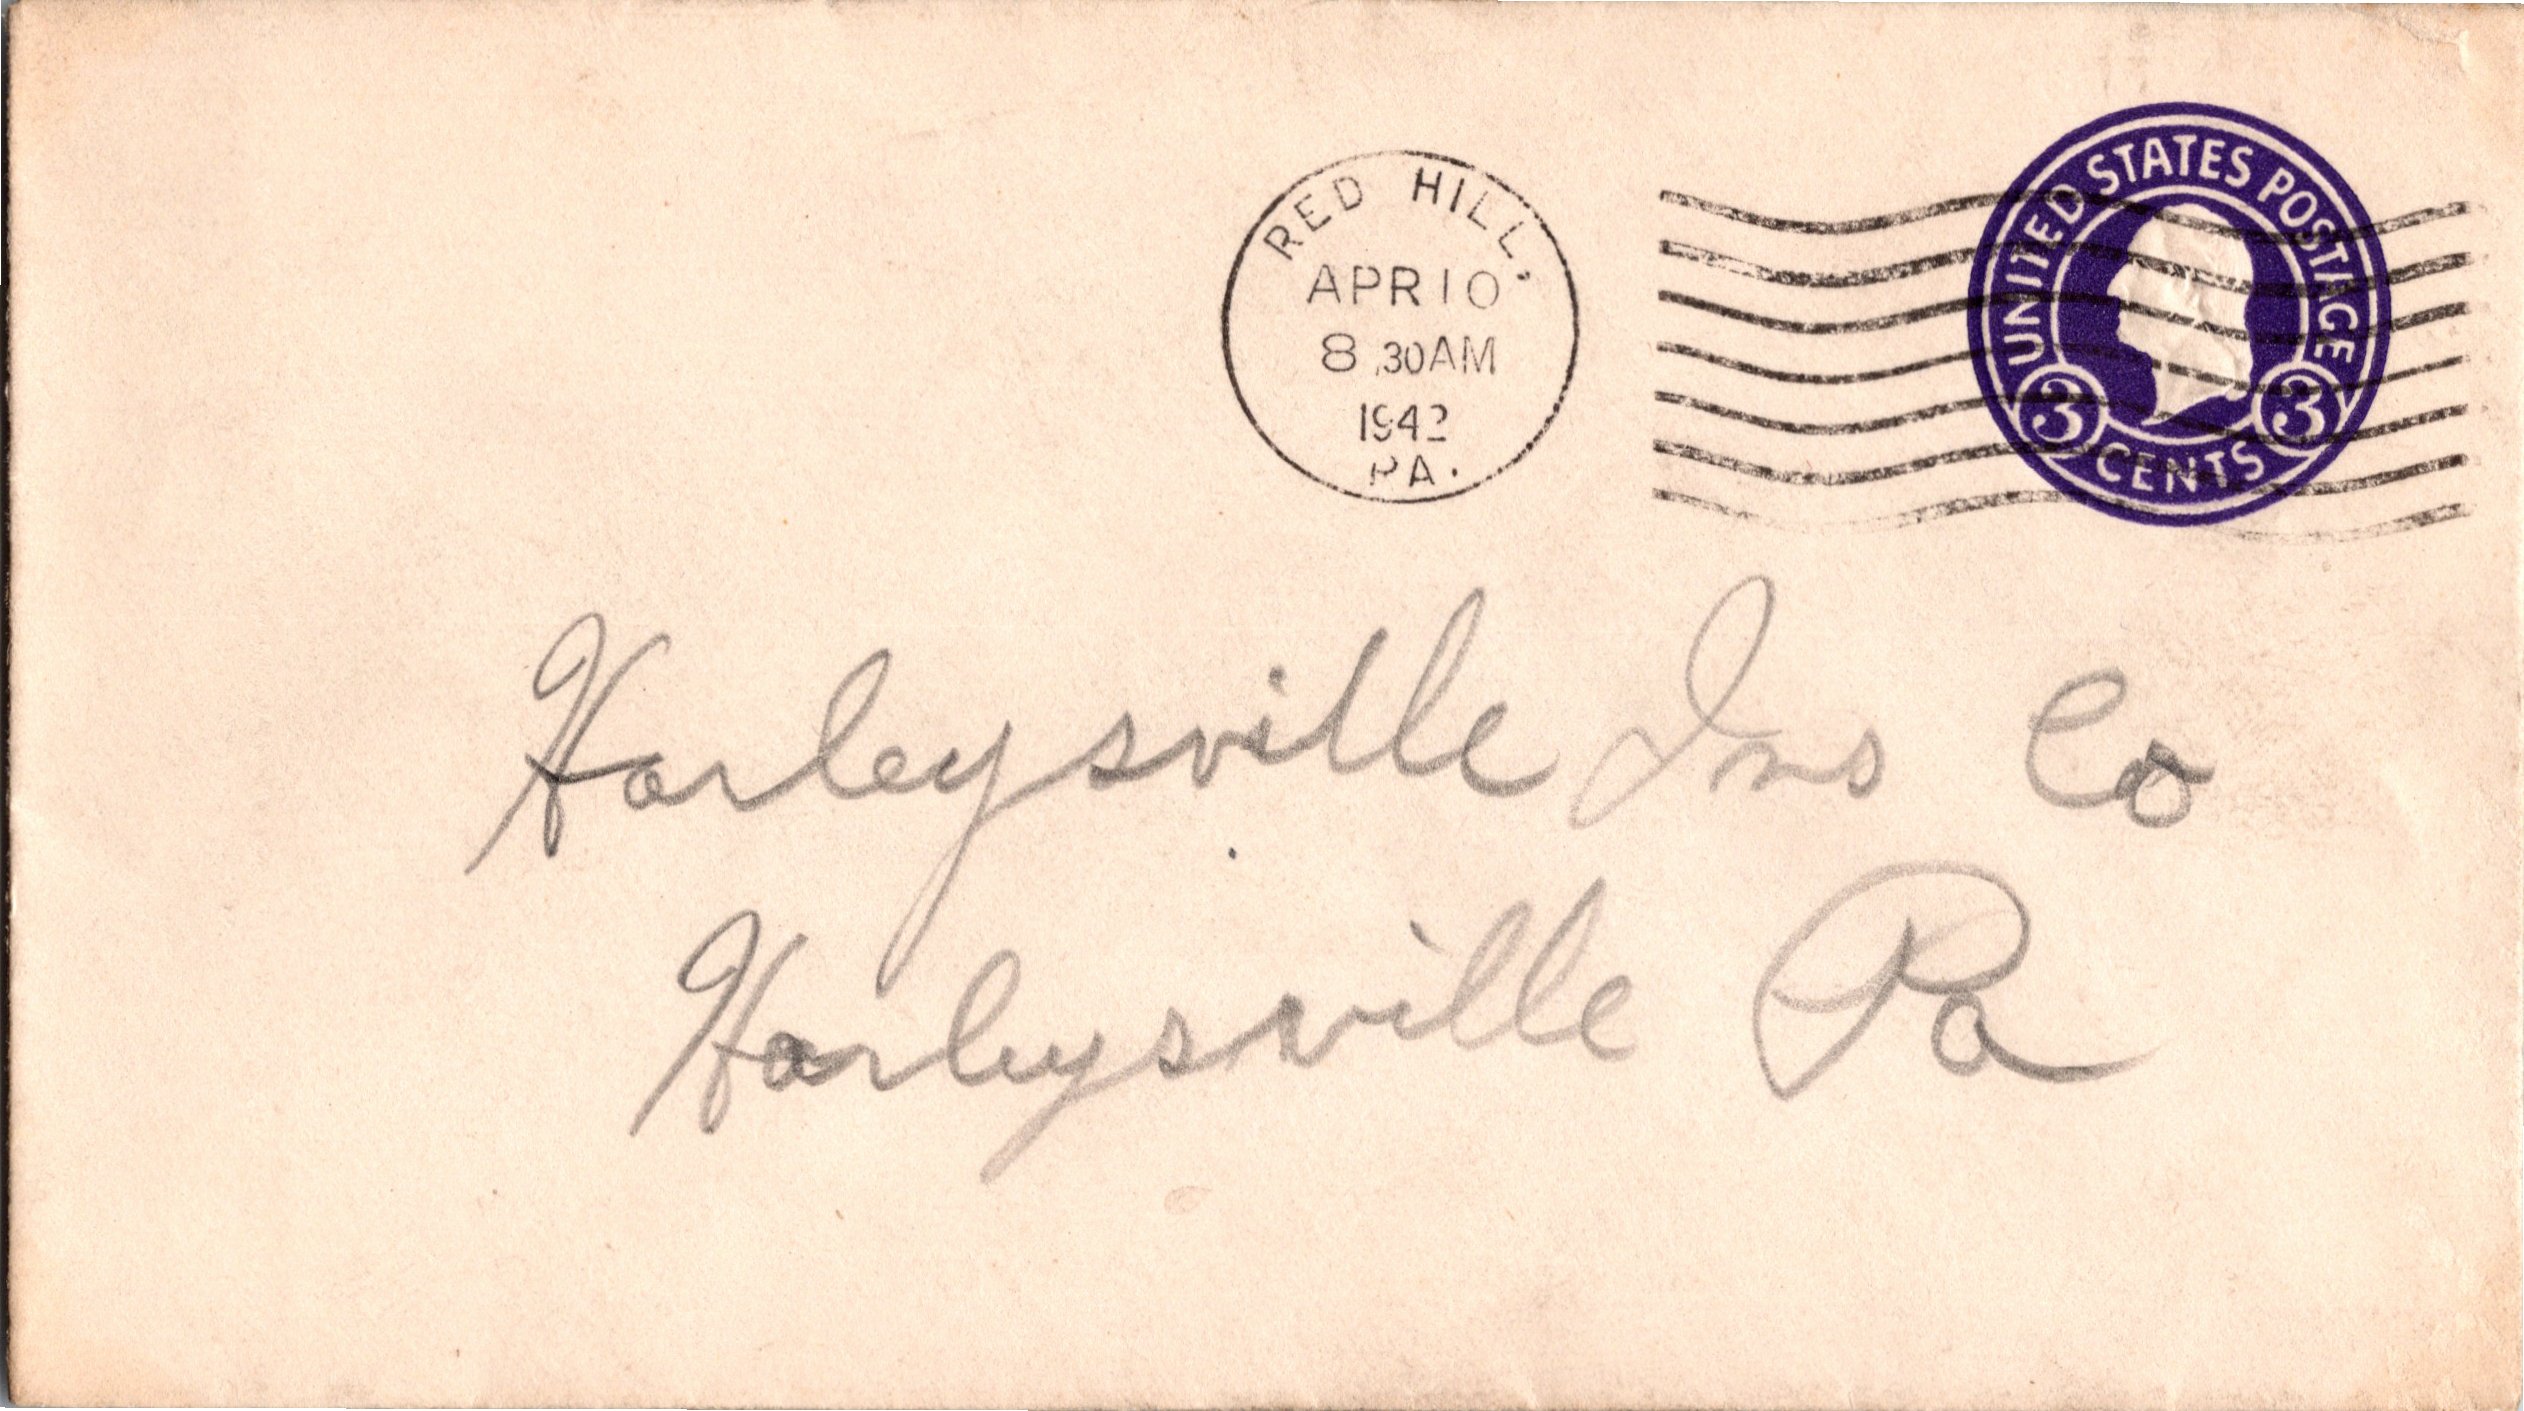 RED HILL,
APR 10
8.30AM
1942
PA.
UNITED STATES POSTAGE
3 CENTS 3
Harleysville Ins Co
Harleysville Pa